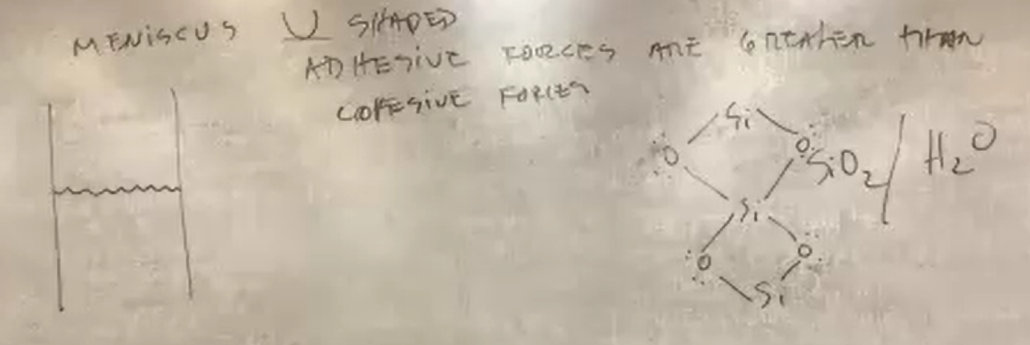 MENISCUS U SHAPED
ADHESIVE FORCES ARE GREATER THAN
COHESIVE FORCES
Si
O O SiO₂ / H₂O
Si
O O
Si